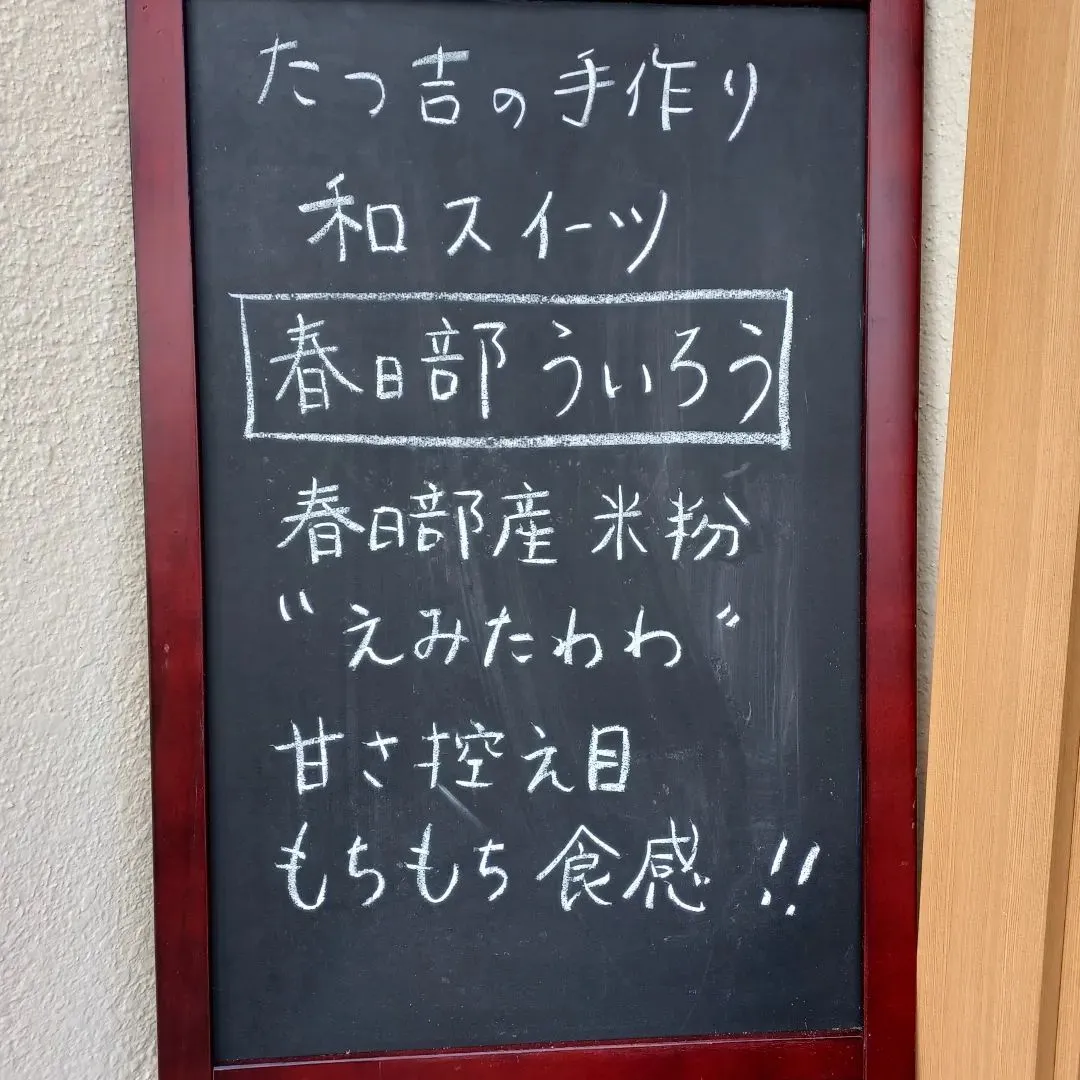 たつ吉の手作り
和スイーツ
春日部ういろう
春日部産 米粉
"えみたわわ"
甘さ控え目
もちもち食感!!